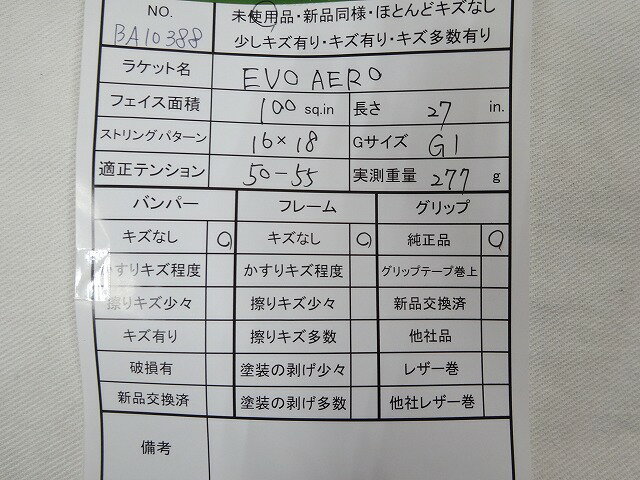 NO. 未使用品・新品同様・ほとんどキズなし
BA10388 少しキズ有り・キズ有り・キズ多数有り
ラケット名 EVO AERO
フェイス面積 100 sq.in 長さ 27 in.
ストリングパターン 16×18 Gサイズ G1
適正テンション 50-55 実測重量 277 g
バンパー フレーム グリップ
キズなし ○ キズなし ○ 純正品 ○
かすりキズ程度 かすりキズ程度 グリップテープ巻上
擦りキズ少々 擦りキズ少々 新品交換済
キズ有り 擦りキズ多数 他社品
破損有 塗装の剥げ少々 レザー巻
新品交換済 塗装の剥げ多数 他社レザー巻
備考